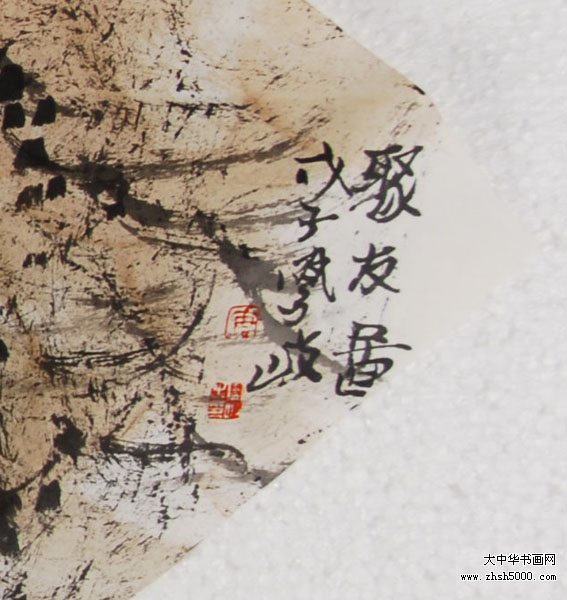 聚友圖
戊子鳳岐
大中华书画网
www.zhsh5000.com